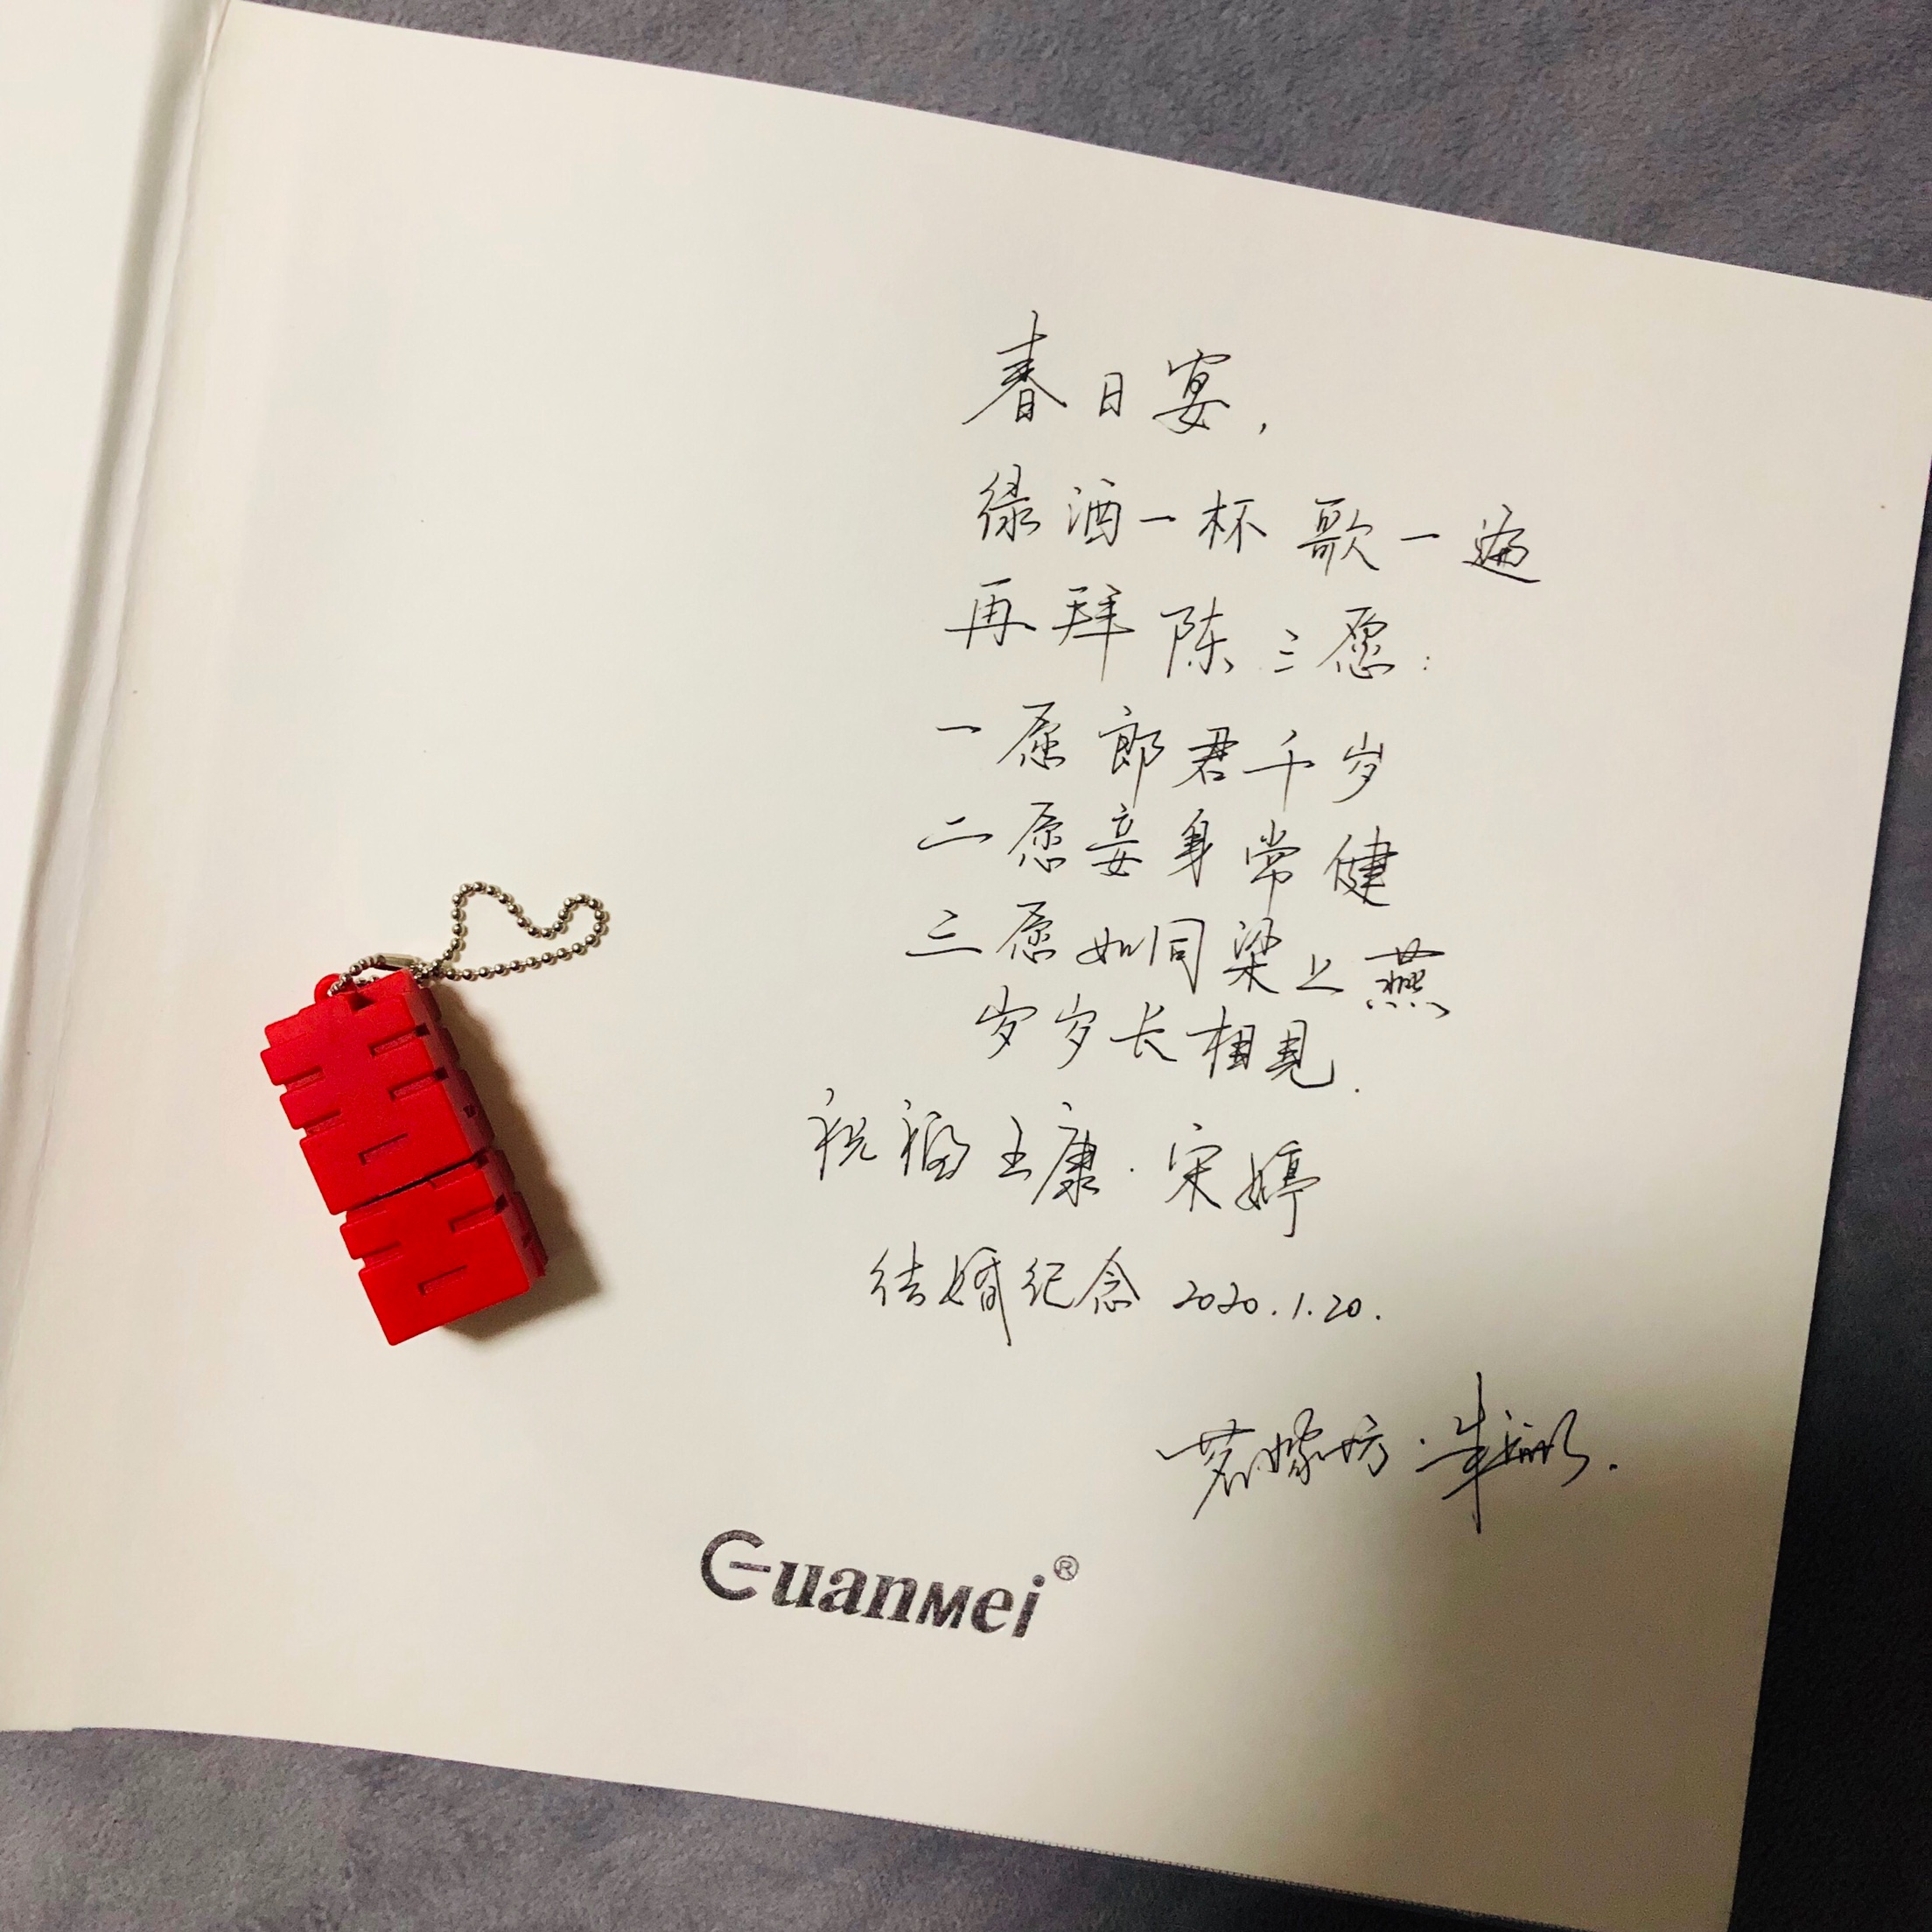 春日宴,
绿酒一杯歌一遍
再拜陈三愿:
一愿郎君千岁
二愿妾身常健
三愿如同梁上燕
岁岁长相见.
祝福王康·宋婷
结婚纪念 2020.1.20.
嫁坊·朱
Guanmei®
囍